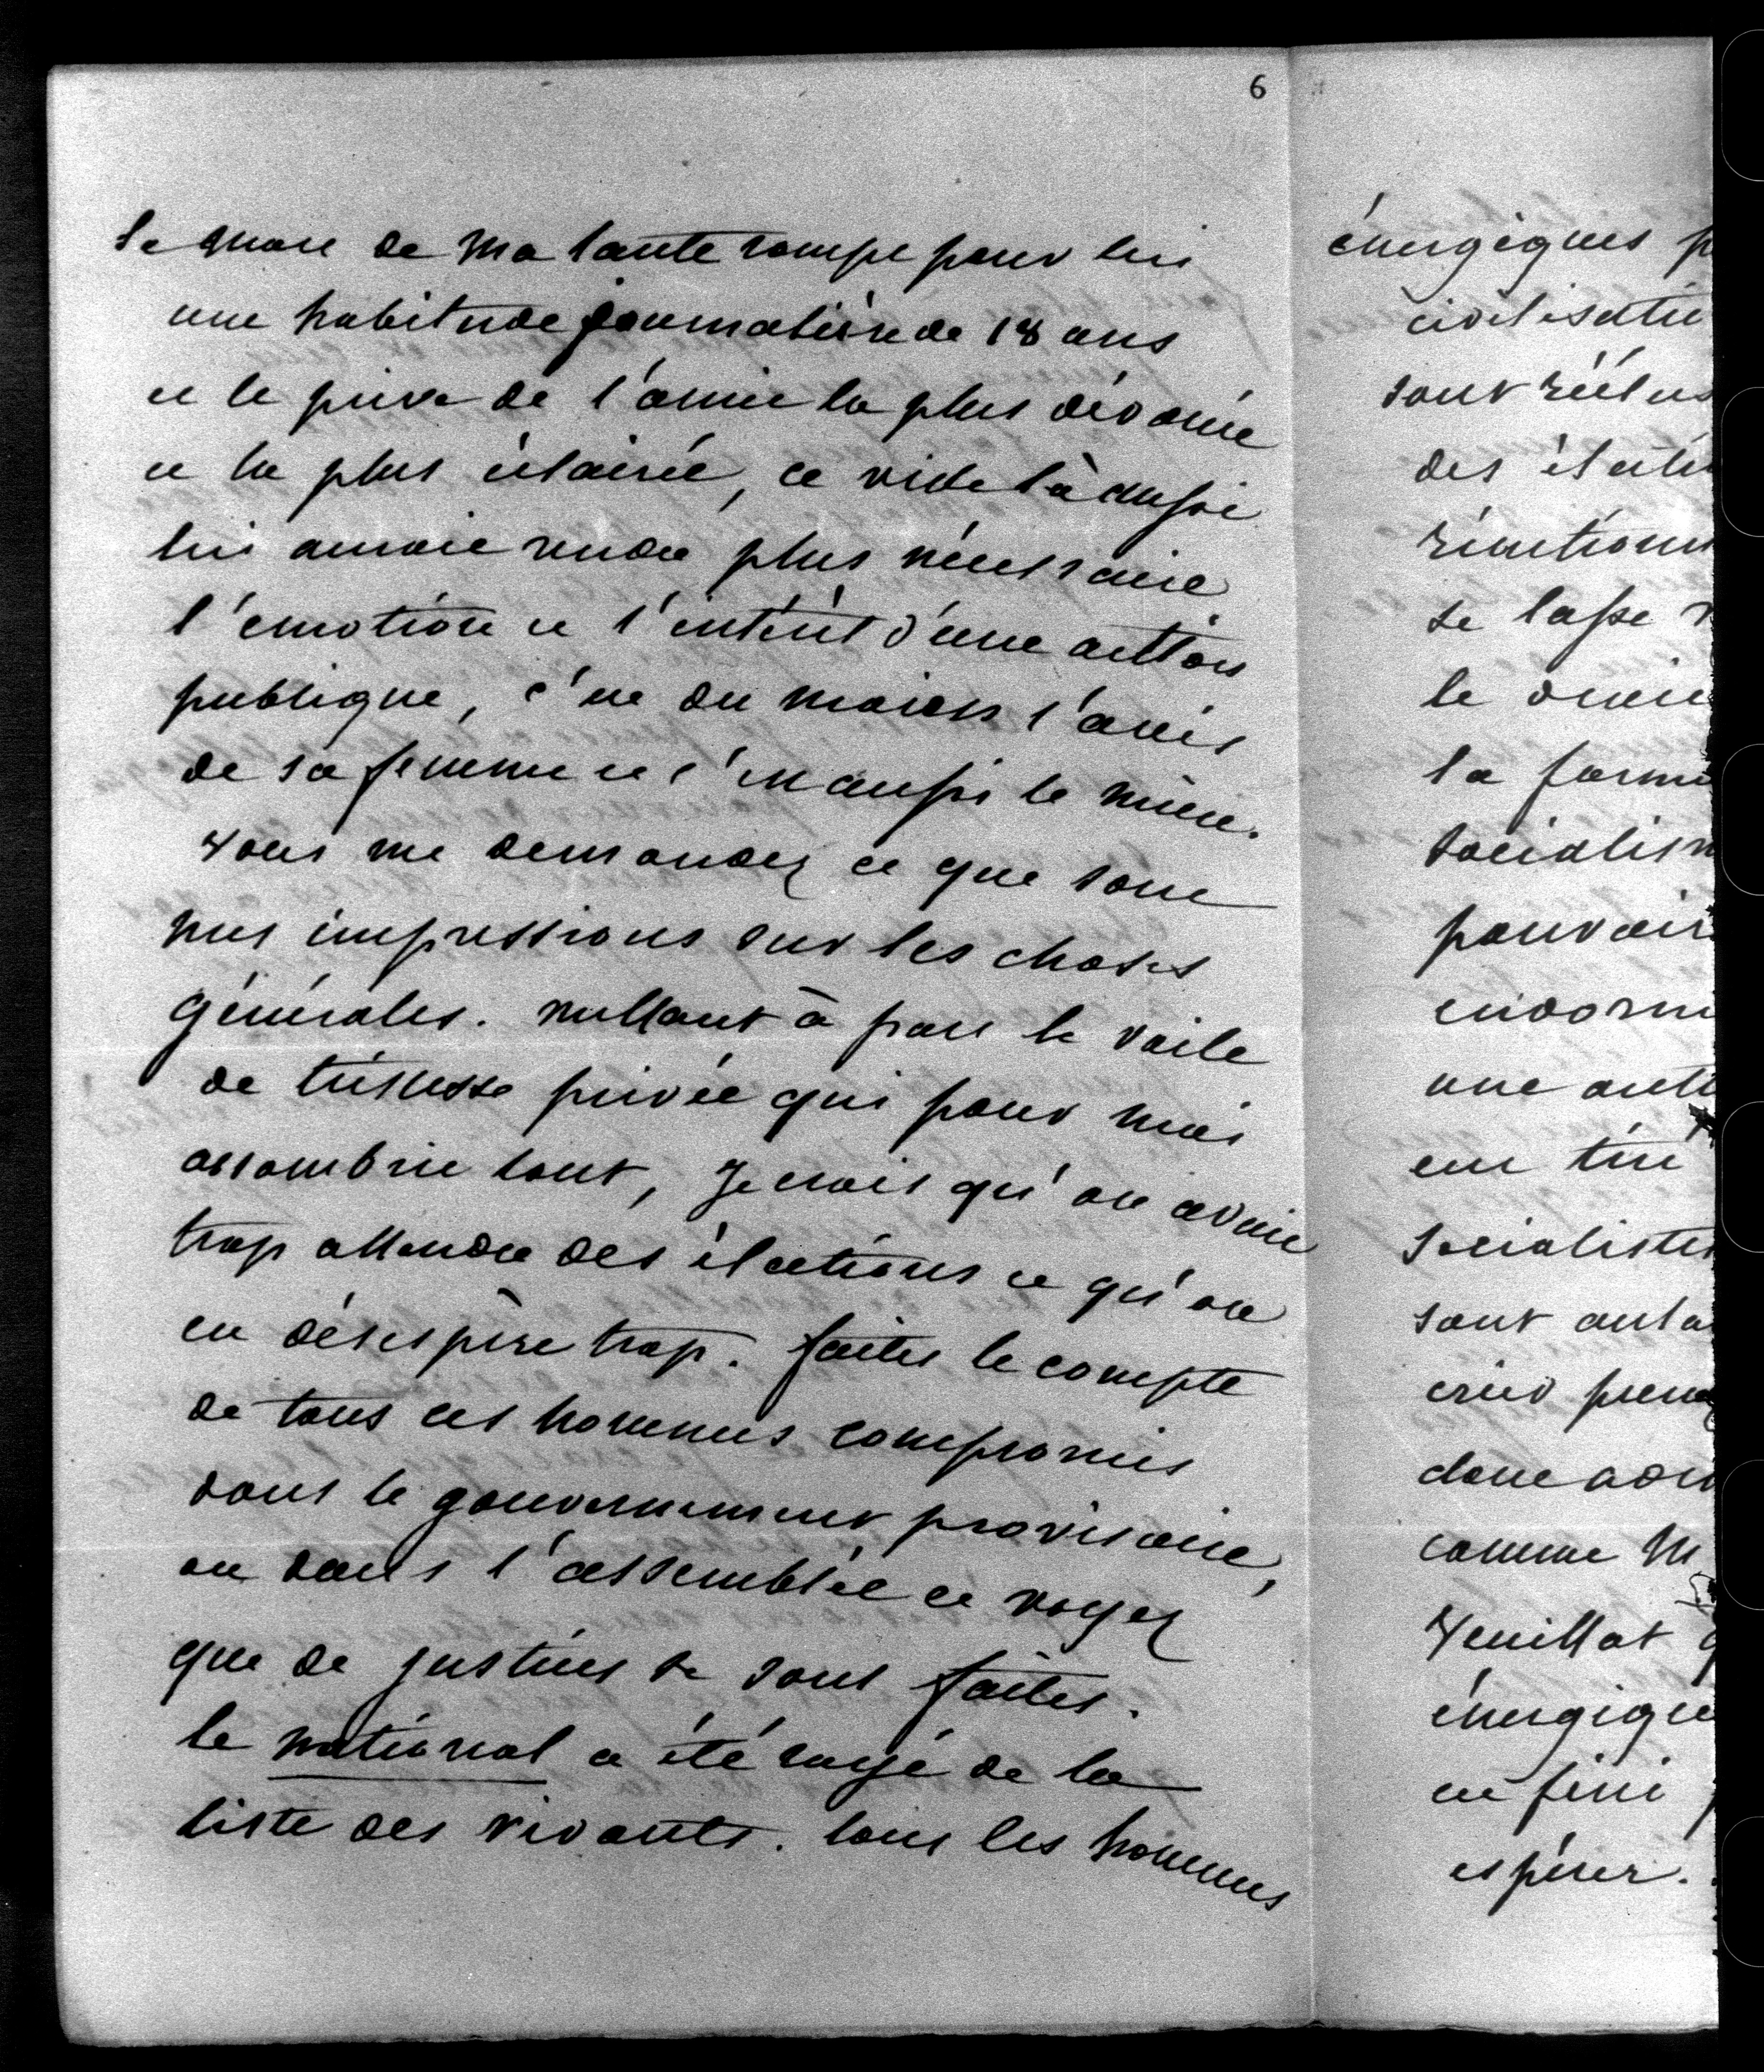 6
la mort de ma tante rompt pour lui
une habitude journalière de 18 ans
et le prive de l'amie la plus dévouée
et la plus éclairée, ce vide là aussi
lui aurait rendu plus nécessaire
l'emotion et l'intérêt d'une action
publique, c'est du moins l'avis
de sa femme et c'est aussi le mien.
Vous me demandez ce que sont
mes impressions sur les choses
générales. mettant à part le voile
de tristesse privée qui pour moi
assombrit tout, je crois qu'on avait
trop attendu des élections et qu'on
en désespère trop. faites le compte
de tous ces hommes compromis
dans le gouvernement provisoire,
ou dans l'assemblée et voyez
que de justices se sont faites.
le national a été rayé de la
liste des vivants. tous les hommes
énergiques
civilisatio
sont réélus
des électi
réunions
se lasse
le
la forme
socialism
pouvoir
endorm
une
en tire
socialistes
sont
donc
comme M
Veuillot
énergique
en fini
espérer.